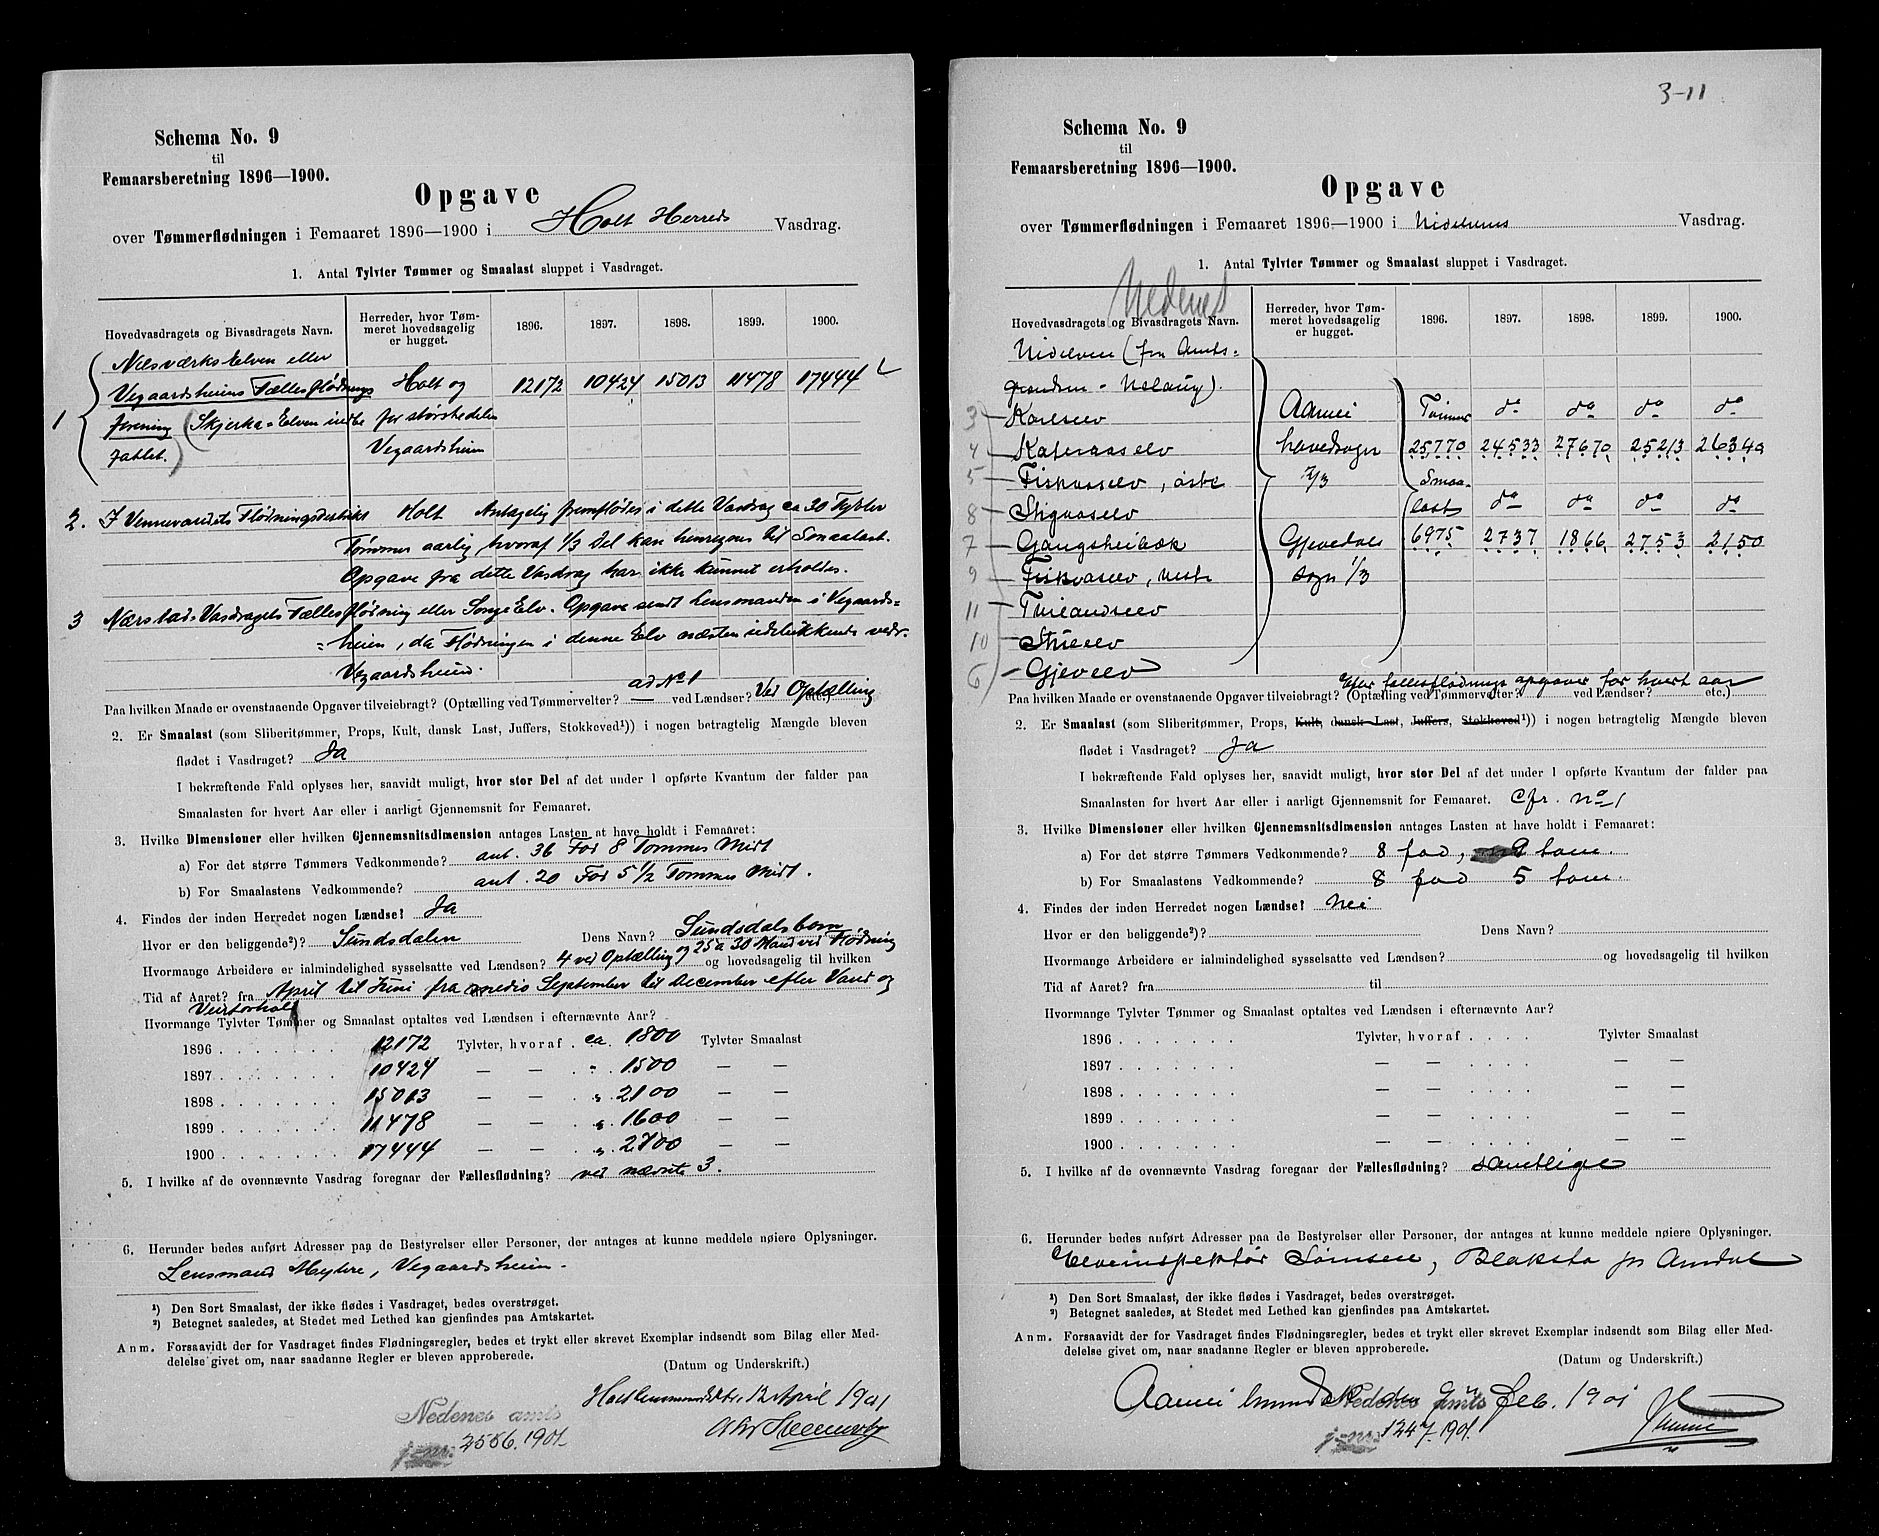 Schema No. 9
til
Femaarsberetning 1896—1900.
Opgave
over Tømmerflødningen i Femaaret 1896—1900 i Holt Herreds Vasdrag.
1. Antal Tylvter Tømmer og Smaalast sluppet i Vasdraget.
Hovedvasdragets og Bivasdragets Navn. Herreder, hvor Tømmeret hovedsagelig er hugget. 1896. 1897. 1898. 1899. 1900.
1 Næsværks Elven eller
Vegaardsheiens Fællesflødnings Holt og 12172 10424 15013 11478 17444
forening (Skjerka-Elven indbe for størstedelen
fattet.) Vegaardsheien
2. I Vennevandets Flødningsdistrikt Holt Antagelig fremflødes i dette Vasdrag ca 30 Tylvter
Tømmer aarlig, hvoraf 1/3 Del kan henregnes til Smaalast.
Opgave fra dette Vasdrag har ikke kunnet erholdes.
3 Nærstad-Vasdragets Fællesflødning eller Songe Elv. Opgave sendt Lensmanden i Vegaards-
=heien, da Flødningen i denne Elv næsten udelukkende vedr.
Vegaardsheien.
Paa hvilken Maade er ovenstaaende Opgaver tilveiebragt? (Optælling ved Tømmervelter? ad No 1 ved Lændser? Ved Optælling etc.)
2. Er Smaalast (som Sliberitømmer, Props, Kult, dansk Last, Juffers, Stokkeved¹)) i nogen betragtelig Mængde bleven
flødet i Vasdraget? Ja
I bekræftende Fald oplyses her, saavidt muligt, hvor stor Del af det under 1 opførte Kvantum der falder paa
Smaalasten for hvert Aar eller i aarligt Gjennemsnit for Femaaret.
3. Hvilke Dimensioner eller hvilken Gjennemsnitsdimension antages Lasten at have holdt i Femaaret:
a) For det større Tømmers Vedkommende? ant. 36 Fod 8 Tommer Midt
b) For Smaalastens Vedkommende? ant. 20 Fod 5 1/2 Tommer Midt.
4. Findes der inden Herredet nogen Lændse? Ja
Hvor er den beliggende²)? Sundsdalen Dens Navn? Sundsdalsbom
Hvormange Arbeidere er ialmindelighed sysselsatte ved Lændsen? 4 ved Optælling og 25 a 30 Mand ved Flødning og hovedsagelig til hvilken
Tid af Aaret? fra April til Juni fra medio September til December efter Vand og
Veirforhold
Hvormange Tylvter Tømmer og Smaalast optaltes ved Lændsen i efternævnte Aar?
1896 . . . . . . . 12172 Tylvter, hvoraf . ca. 1800 Tylvter Smaalast
1897 . . . . . . . 10424 — — " 1500 — —
1898 . . . . . . . 15013 — — " 2100 — —
1899 . . . . . . . 11478 — — " 1600 — —
1900 . . . . . . . 17444 — — " 2700 — —
5. I hvilke af de ovennævnte Vasdrag foregaar der Fællesflødning? ved nævnte 3.
6. Herunder bedes anført Adresser paa de Bestyrelser eller Personer, der antages at kunne meddele nøiere Oplysninger.
Lensmand Vegaardsheien.
¹) Den Sort Smaalast, der ikke flødes i Vasdraget, bedes overstrøget.
²) Betegnet saaledes, at Stedet med Lethed kan gjenfindes paa Amtskartet.
Anm. Forsaavidt der for Vasdraget findes Flødningsregler, bedes et trykt eller skrevet Exemplar indsendt som Bilag eller Med-
delelse givet om, naar saadanne Regler er bleven approberede.
(Datum og Underskrift.)
12 April 1901
Nedenes amts
j-nr. 2556. 1901.
3-11
Schema No. 9
til
Femaarsberetning 1896—1900.
Opgave
over Tømmerflødningen i Femaaret 1896—1900 i Nidelvens Vasdrag.
1. Antal Tylvter Tømmer og Smaalast sluppet i Vasdraget.
Nedenes
Hovedvasdragets og Bivasdragets Navn. Herreder, hvor Tømmeret hovedsagelig er hugget. 1896. 1897. 1898. 1899. 1900.
Nidelven (fra Amts-
grændsen - Nelaug).
3 Aamli Tømmer do do do do
4 hovedsogn 25770 24533 27670 25213 26340
5 Fiskaaelv, østre 2/3 Smaa-
8 last do do do do
7 Gangsheibæk Gjevedals 6975 2737 1866 2753 2150
9 Fiskaaelv, vestre sogn 1/3
11
10
6 Gjevelv
Paa hvilken Maade er ovenstaaende Opgaver tilveiebragt? (Optælling ved Tømmervelter? ved Lændser? etc.)
Efter fællesflødnings opgaver for hvert aar
2. Er Smaalast (som Sliberitømmer, Props, Kult, dansk Last, Juffers, Stokkeved¹)) i nogen betragtelig Mængde bleven
flødet i Vasdraget? Ja
I bekræftende Fald oplyses her, saavidt muligt, hvor stor Del af det under 1 opførte Kvantum der falder paa
Smaalasten for hvert Aar eller i aarligt Gjennemsnit for Femaaret. Cfr. No 1
3. Hvilke Dimensioner eller hvilken Gjennemsnitsdimension antages Lasten at have holdt i Femaaret:
a) For det større Tømmers Vedkommende? 8 fod, 9 tom.
b) For Smaalastens Vedkommende? 8 fod 5 tom.
4. Findes der inden Herredet nogen Lændse? Nei
Hvor er den beliggende²)? Dens Navn?
Hvormange Arbeidere er ialmindelighed sysselsatte ved Lændsen? og hovedsagelig til hvilken
Tid af Aaret? fra til
Hvormange Tylvter Tømmer og Smaalast optaltes ved Lændsen i efternævnte Aar?
1896 . . . . . . . Tylvter, hvoraf . . . . Tylvter Smaalast
1897 . . . . . . . — — — —
1898 . . . . . . . — — — —
1899 . . . . . . . — — — —
1900 . . . . . . . — — — —
5. I hvilke af de ovennævnte Vasdrag foregaar der Fællesflødning? samtlige
6. Herunder bedes anført Adresser paa de Bestyrelser eller Personer, der antages at kunne meddele nøiere Oplysninger.
Elveinspektør Simonsen, Blakstad pr Arendal
¹) Den Sort Smaalast, der ikke flødes i Vasdraget, bedes overstrøget.
²) Betegnet saaledes, at Stedet med Lethed kan gjenfindes paa Amtskartet.
Anm. Forsaavidt der for Vasdraget findes Flødningsregler, bedes et trykt eller skrevet Exemplar indsendt som Bilag eller Med-
delelse givet om, naar saadanne Regler er bleven approberede.
(Datum og Underskrift.)
Aamli Feb. 1901
Nedenes amts
j-nr. 1247. 1901.